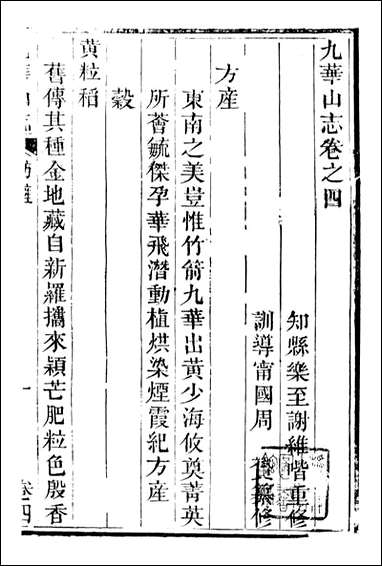 九華山志卷之四
知縣樂至謝維喈重修
訓導甯國周
纂修
方産
東南之美豈惟竹箭九華出黃少海攸奠菁英
所薈毓傑孕華飛潛動植烘染煙霞紀方産
穀
黃粒稻
舊傳其種金地藏自新羅攜來穎芒肥粒色殷香
卷四
一